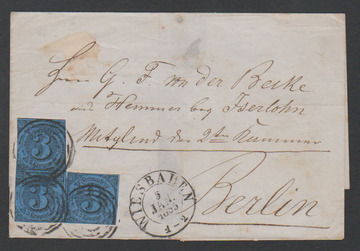 Herrn G. F. von der Becke
aus Hemmer bey Iserlohn
Mitglied der 2ten Kammer
Berlin
WIESBADEN
5
JAN.
1855
1-2
3
3
3